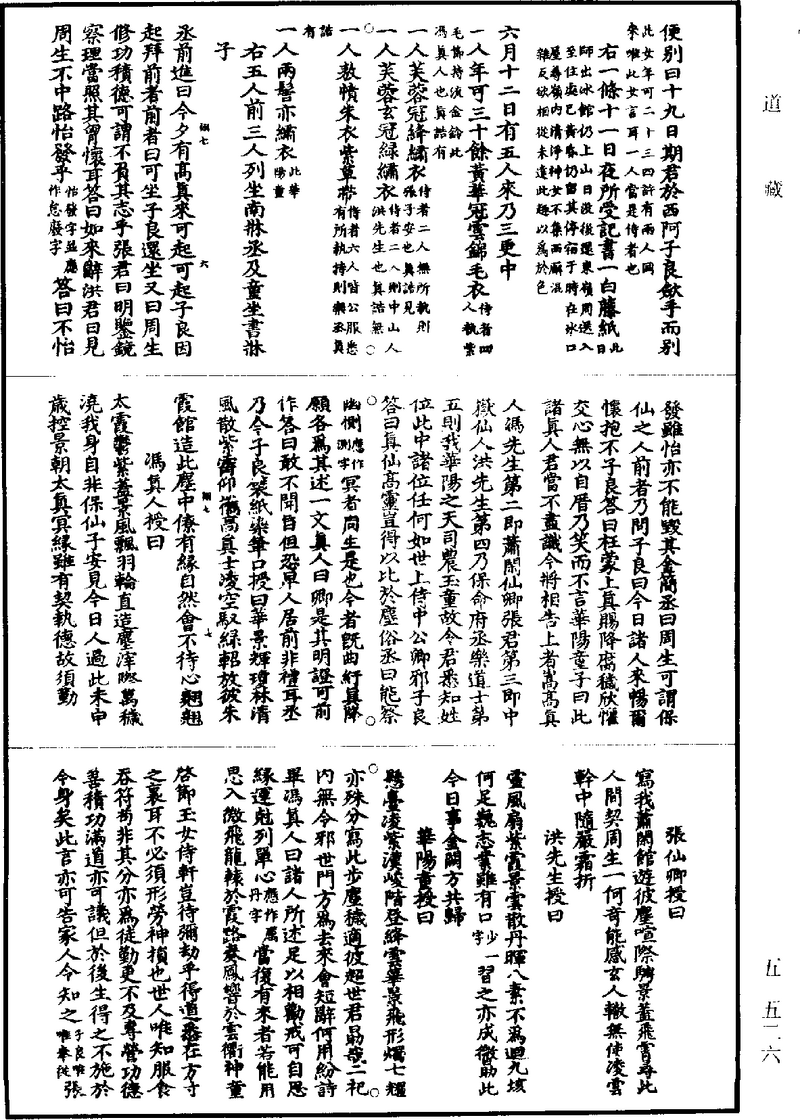 道藏
便別曰十九日期君於西阿子良斂手而別
此女年可二十三四許有兩人同
來唯此女言耳一人當是侍者也
右一條十一日夜所受記書一白藤紙此日
師出冰館仍上山日沒後還東嶺周送入
至住處已黃昏仍留其停宿于時在冰口
屋尋嶺內清淨神女不集西廨混
雜反欲相從未達此趣以為於色
六月十二日有五人來乃三更中
一人年可三十餘黃華冠雲錦毛衣侍者四人執紫
毛節持流金鈴此
馮真人也真誥有
一人芙蓉冠絳繡衣侍者二人無所執則張子安也真誥見
一人芙蓉玄冠綠繡衣侍者二人則中山人洪先生也真誥無
一人赦幘朱衣紫草帶侍者六人皆公服悉有所執持則樂丞真
誥有
一人兩髻亦繡衣此華陽童
右五人前三人列坐南牀丞及童坐書牀
子
丞前進曰今夕有高真來可起可起子良因
起拜前者前者曰可坐子良還坐又曰周生
修功積德可謂不負其志乎張君曰明鑒鏡
察理當照其胃懷耳答曰如來辭洪君曰見
周生不中路怡發乎怡發字並應作怠廢字答曰不怡
發雖怡亦不能毀其金簡丞曰周生可謂保
仙之人前者乃問子良曰今日諸人來暢爾
懷抱不子良答曰枉蒙上真賜降腐穢欣懼
交心無以自厝乃笑而不言華陽童子曰此
諸真人君當不盡識今將相告上者嵩高真
人馮先生第二即蕭閑仙卿張君第三即中
嶽仙人洪先生第四乃保命府丞樂道士第
五則我華陽之天司農玉童故令君悉知姓
位此中諸位任何如世上侍中公卿邪子良
答曰真仙高靈豈得以比於塵俗丞曰能察
幽惻應作測字冥者周生是也今者既曲紆真降
願各為其述一文真人曰卿是其明證可前
作答曰敢不聞旨但恐卑人居前非禮耳丞
乃令子良襞紙染筆口授曰華景輝瓊林清
風散紫霄仰攜高真士凌空馭綠軺放彼朱
霞館造此塵中僚有緣自然會不待心翹翹
馮真人授曰
太霞鬱紫蓋景風飄羽輪直造塵滓際萬穢
澆我身自非保仙子安見今日人過此未申
歲控景朝太真冥緣雖有契執德故須勤
張仙卿授曰
寫我蕭閑館遊彼塵喧際騁景蓋飛霄尋此
人間契周生一何奇能感玄人轍無使凌雲
幹中隨嚴霜折
洪先生授曰
靈風扇紫霞景雲散丹暉八素不為迴九垓
何足巍志業雖有口少一字習之亦成微助此
今日事金闕方共歸
華陽童授曰
懸臺凌紫漢峻階登絳雲華景飛形燭七耀
亦殊分寫此步塵穢適彼超世君勗哉二祀
內無令邪世門方為去來會短辭何用紛詩
畢馮真人曰諸人所述足以相勸戒可自思
緣運尅列單心應作殫丹字當復有來者若能用
思入微飛龍轅於霞路奏鳳響於雲衢神童
啓節玉女侍軒豈待彌劫乎得道悉在方寸
之裏耳不必須形勞神損也世人唯知服食
吞符苟非其分亦為徒勤更不及專營功德
善積功滿道亦可議但於後生得之不施於
今身矣此言亦可告家人令知之子良唯唯奉從張
五五二六